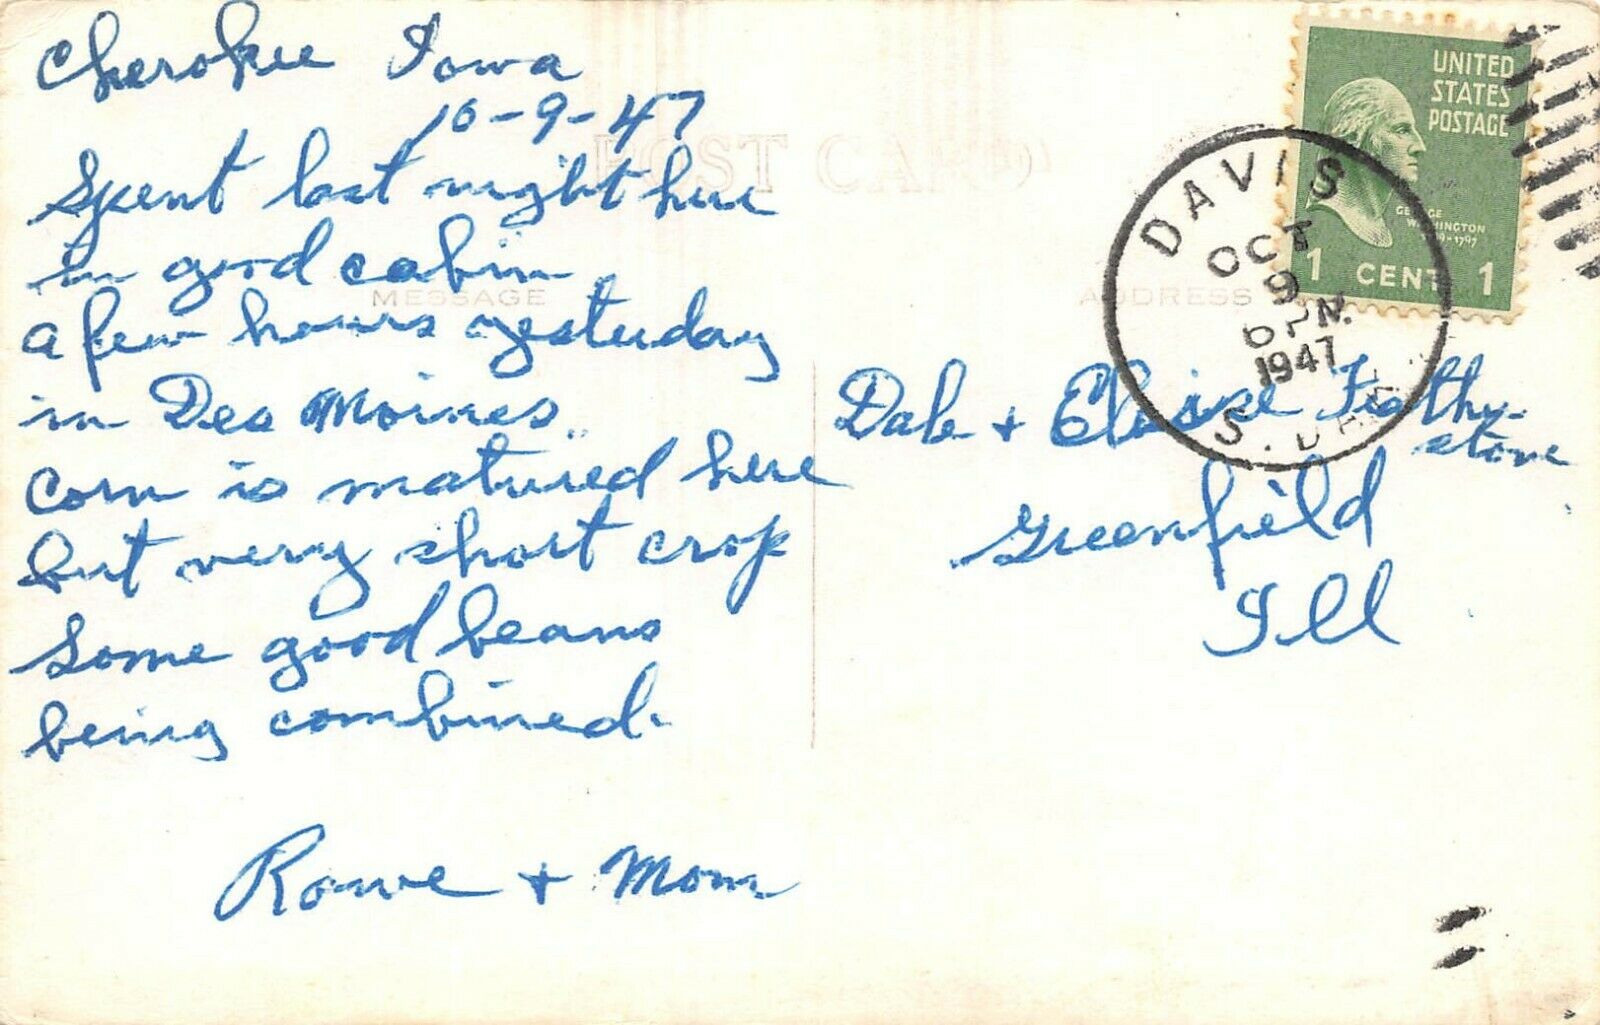 Cherokee Iowa
10-9-47
Spent last night here
in good cabin
a few hours yesterday
in Des Moines.
corn is matured here
but very short crop
Some good beans
being combined.
Rowe + Mom
POST CARD
MESSAGE
ADDRESS
UNITED
STATES
POSTAGE
GEORGE
WASHINGTON
1 CENT 1
DAVIS
OCT
9
6 PM
1947
S. DAK.
Dale + Eloise Feathy-
stone
Greenfield
Ill